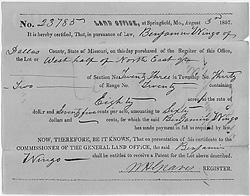 No. 23785 LAND OFFICE, at Springfield, Mo., August 3rd 1857.
It is hereby certified, That, in pursuance of Law, Benjamin Wingo of
Dallas County, State of Missouri, on this day purchased of the Register of this Office,
the Lot or West half of North East qr
of Section No. Twenty Three in Township No. Thirty
Two of Range No. Twenty containing
Eighty acres, at the rate of
dollar and Seventy five cents per acre, amounting to Sixty
dollars and cents, for which the said Benjamin Wingo
has made payment in full as required by law.
NOW, THEREFORE, BE IT KNOWN, That on presentation of this certificate to the
COMMISSIONER OF THE GENERAL LAND OFFICE, the said Benjamin
Wingo shall be entitled to receive a Patent for the Lot above described.
Graves REGISTER.